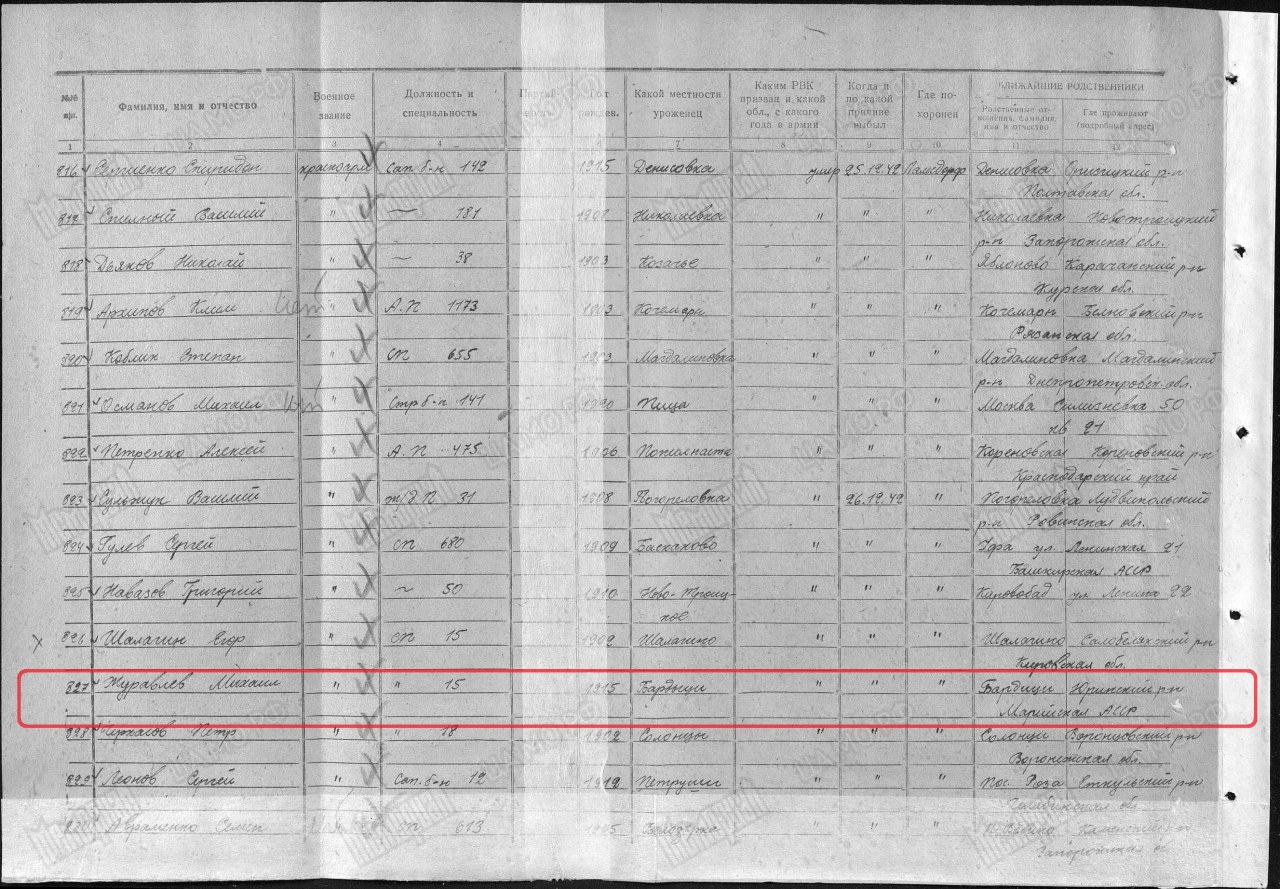 №№ пп. Фамилия, имя и отчество Военное звание Должность и специальность Год рожден. Какой местности уроженец Каким РВК призван и какой обл., с какого года в армии Когда и по какой причине выбыл Где похоронен БЛИЖАЙШИЕ РОДСТВЕННИКИ
Родственные отношения, фамилия, имя и отчество Где проживают (подробный адрес)
1 2 3 4 7 8 9 10 11 12
816 Спиридон красноарм Сап. б-н 142 1915 Денисовка умер 25.12.42 Денисовка р-н
Полтавская обл.
Василий " — 181 Николаевка " " " Николаевка Новотроицкий
р-н Запорожская обл.
818 Дьяков Николай " — 38 1903 Козачье " " " Яблоново р-н
Курская обл.
819 Архипов Клим " А.П 1173 1903 " " " р-н
Рязанская обл.
820 Коблик Степан " СП 655 1903 Магдалиновка " " " Магдалиновка
р-н Днепропетровск. обл.
821 Османов Михаил " Стр б-н 141 " " " Москва 50
кв 21
822 Петренко Алексей " А. П 475 1906 " " " Кореновская Кореновский р-н
Краснодарский край
823 Василий " 31 1908 Погореловка " 26.12.42 " Погореловка Лудвипольский
р-н Ровинская обл.
824 Гулев Сергей " СП 680 1909 Баскаково " " " Уфа ул. Ленинская 21
Башкирская АССР
825 Навазов Григорий " ~ 50 1910 Ново-Троицкое " " " Кировобад ул Ленина 22
826 Шалагин Егор " СП 15 1902 Шалагино " " " Шалагино р-н
Кировская обл.
827 Журавлев Михаил " " 15 1915 Бардицы " " " Бардици Юринский р-н
Марийская АССР
828 Петр " " 18 1902 Солонцы " " " Солонци Воронцовский р-н
Воронежская обл.
829 Леонов Сергей " Сап. б-н 12 " " " Пос. Роза Еткульский р-н
Челябинская обл
Авраменко Семен СП 613 " " " р-н
Запорожская